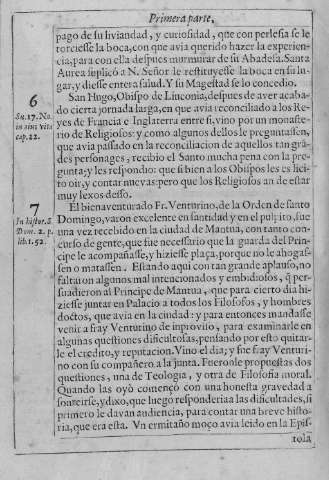 Primera parte,
pago de su liviandad, y curiosidad, que con perlesia se le
torciesse la boca, con que avia querido hazer la experien-
cia, para con ella despues murmurar de su Abadesa. Santa
Aurea suplicò a N. Señor le restituyesse la boca en su lu-
gar, y diesse entera salud. Y su Magestad se lo concedio.
6
San Hugo, Obispo de Linconia, despues de aver acaba-
Su. 17. No.
do cierta jornada larga, en que avia reconciliado a los Re-
in eius vita
yes de Francia e Inglaterra entre si, vino por un monaste-
cap. 22.
rio de Religiosos: y como algunos dellos le preguntassen,
que avia passado en la reconciliacion de aquellos tan grã-
des personages, recibio el Santo mucha pena con la pre-
gunta; y les respondio: que si bien a los Obispos les es lici-
to oir, y contar nuevas: pero que los Religiosos an de estar
muy sexos desso.
7
El bienaventurado Fr. Venturino, de la Orden de santo
In histor. S.
Domingo, varon excelente en santidad y en el pulpito, fue
Dom. 2. p.
una vez recebido en la ciudad de Mantua, con tanto con-
lib. 1. 52.
curso de gente, que fue necessario que la guarda del Prin-
cipe le acompañasse, y hiziesse plaça, porque no le ahogas-
sen o matassen. Estando aqui con tan grande aplauso, no
faltaron algunos mal intencionados y embidiosos, q̃ per-
suadieron al Principe de Mantua, que para cierto dia hi-
ziesse juntar en Palacio a todos los Filosofos, y hombres
doctos, que avia en la ciudad: y para entonces mandasse
venir a fray Venturino de inproviso, para examinarle en
algunas questiones dificultosas, pensando por esto quitar-
le el credito, y reputacion. Vino el dia; y fue fray Venturi-
no con su compañero a la junta. Fueronle propuestas dos
questiones, una de Teologia, y otra de Filosofia moral.
Quando las oyò començò con una honesta gravedad a
sonreirse, y dixo, que luego responderia a las dificultades, si
primero le davan audiencia, para contar una breve histo-
ria, que era esta. Un ermitaño moço avia leido en la Epis-
tola